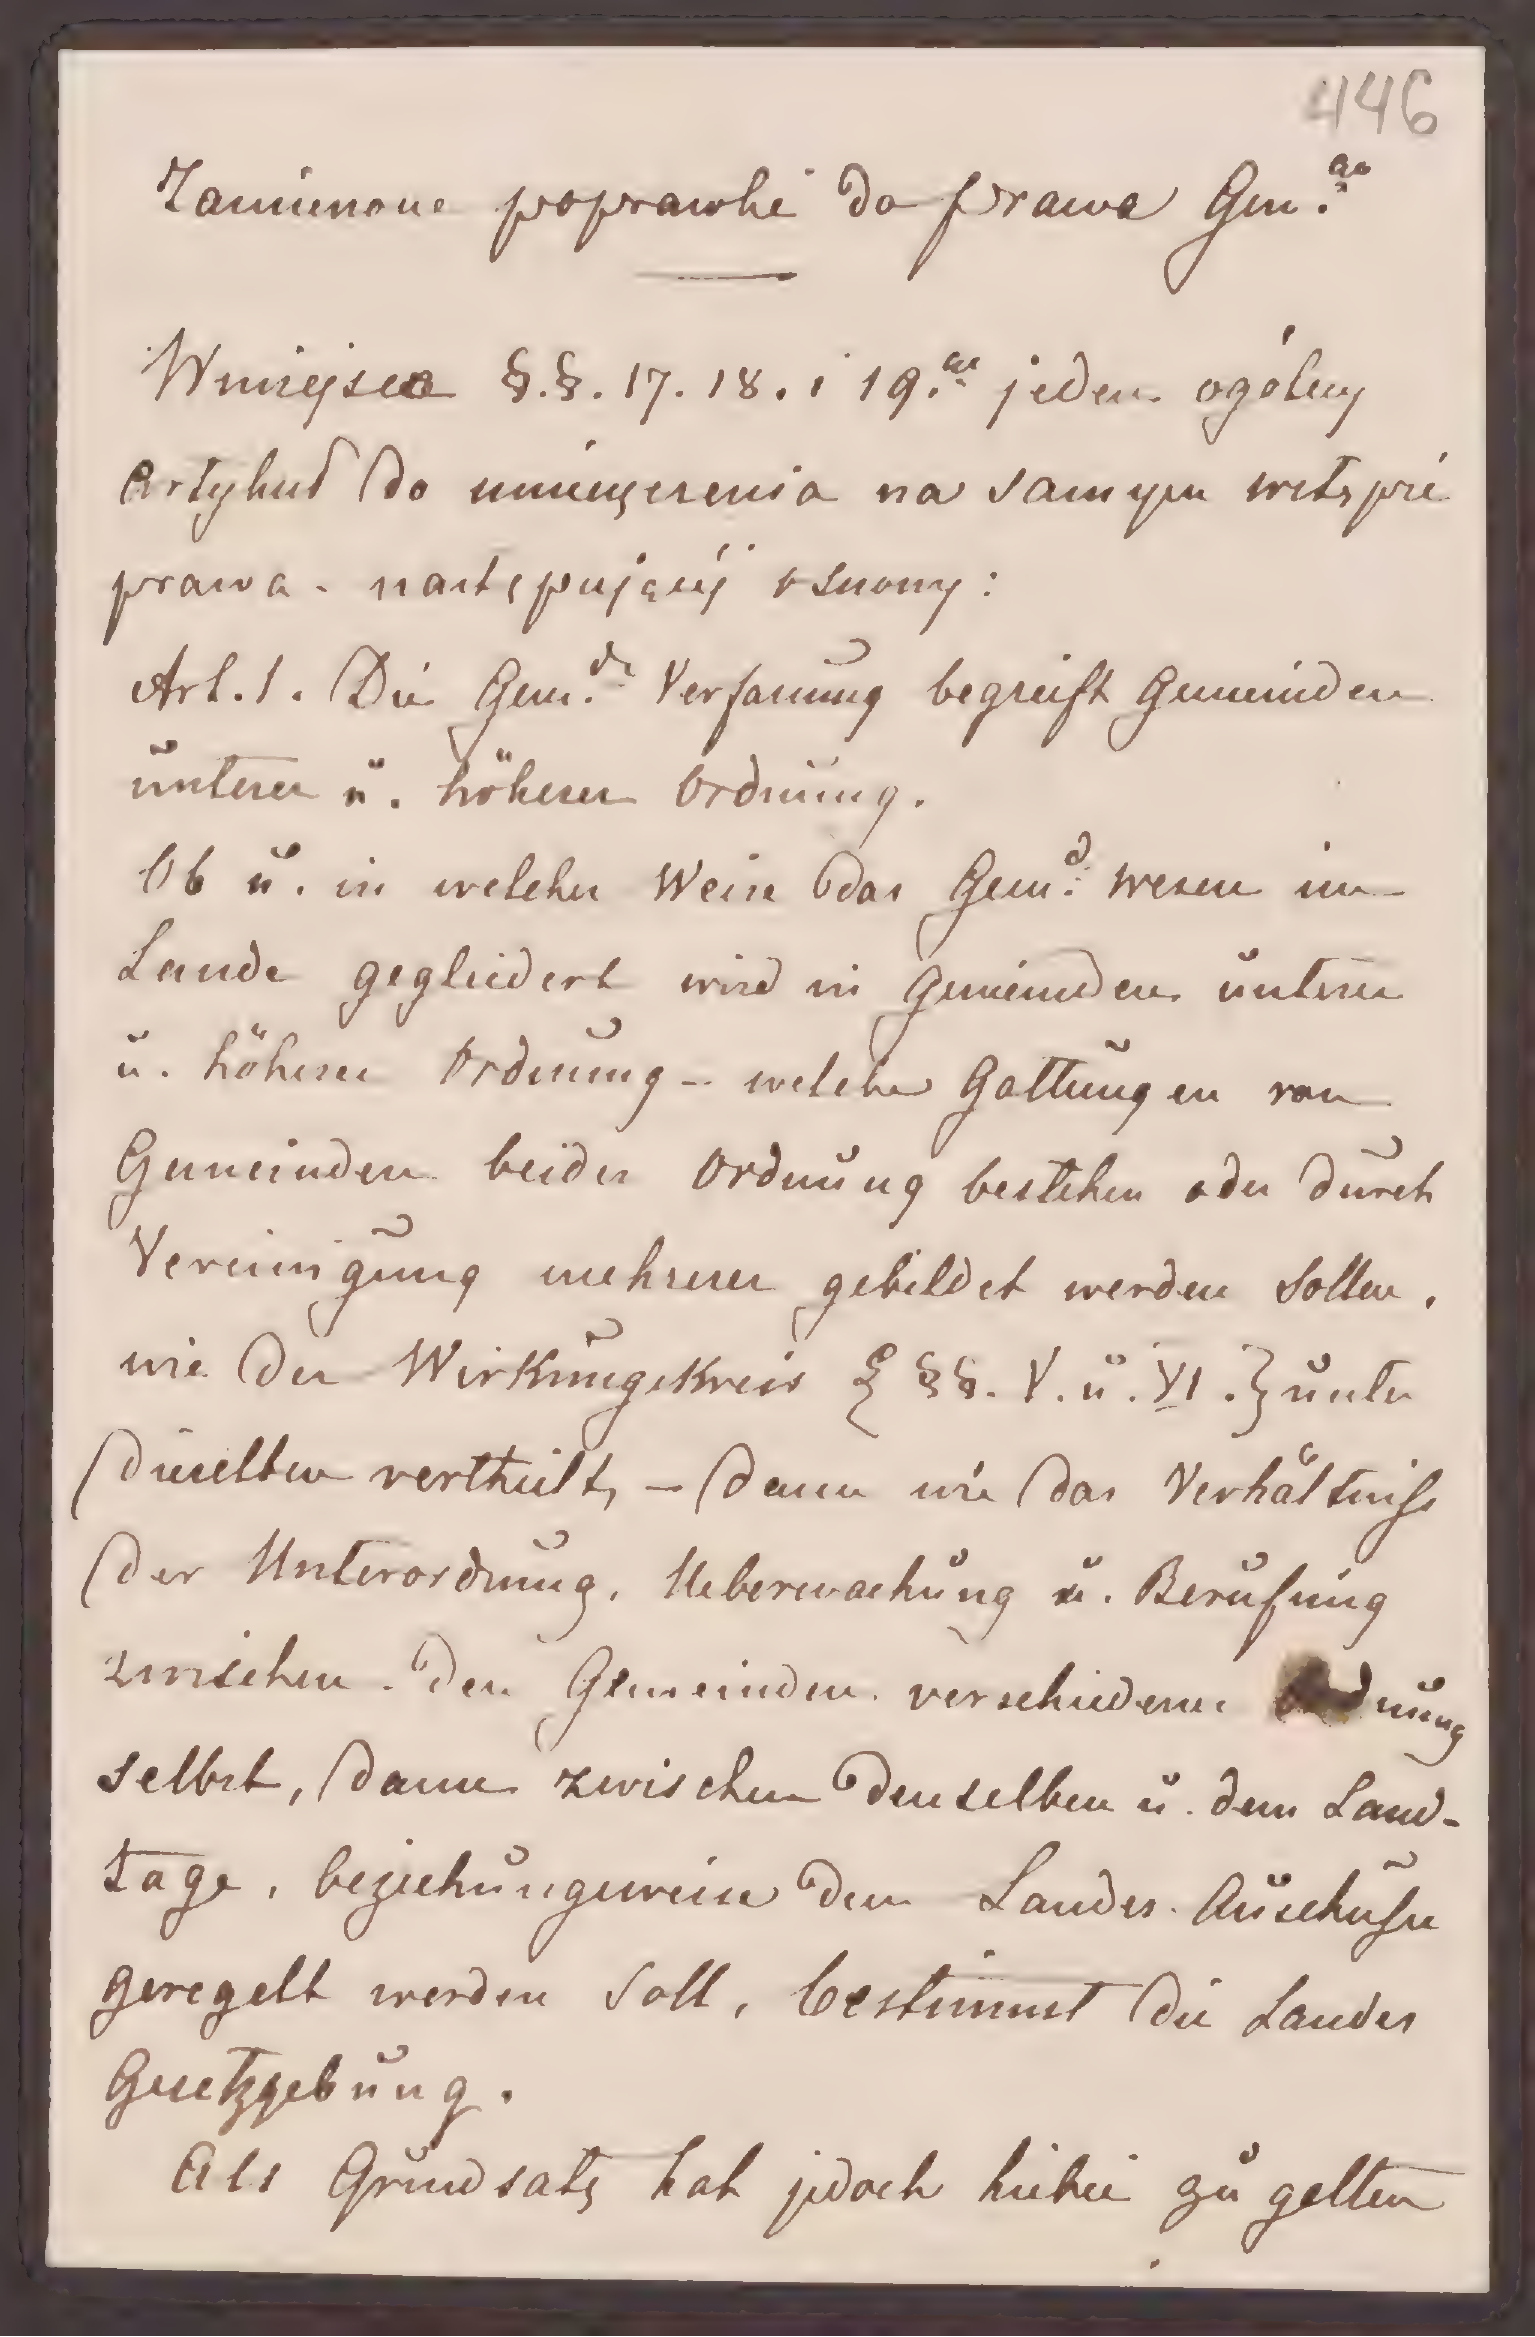 446
Zamienione poprawki do prawa Gm.go
W miejsce §.§. 17. 18. i 19.go jeden ogólny
artykuł do umieszczenia na samym wstępie
prawa - następującéj osnowy:
Art. 1. Die Gem.de Verfassung begreift Gemeinden
unterer u. höherer Ordnung.
Ob u. in welcher Weise das Gem.d wesen im
Lande gegliedert wird in Gemeinden unterer
u. höherer Ordnung - welche Gattungen von
Gemeinden beider Ordnung bestehen oder durch
Vereinigung mehrerer gebildet werden sollen,
wie der Wirkungskreis { §§. V. u. VI. } unter
dieselben vertheilt, - dann wie das Verhältniß
der Unterordnung, Ueberwachung u. Berufung
zwischen den Gemeinden verschiedener Ordnung
selbst, dann zwischen denselben u. dem Land-
tage, beziehungsweise dem Landes-Auschuße
geregelt werden soll, bestimmt die Landes
Gesetzgebung.
Als Grundsatz hat jedoch hiebei zu gelten